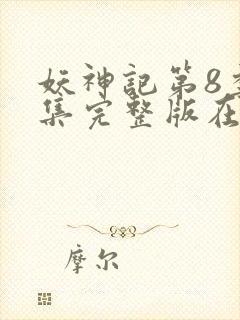 妖神記第8
集完整版在
摩尔